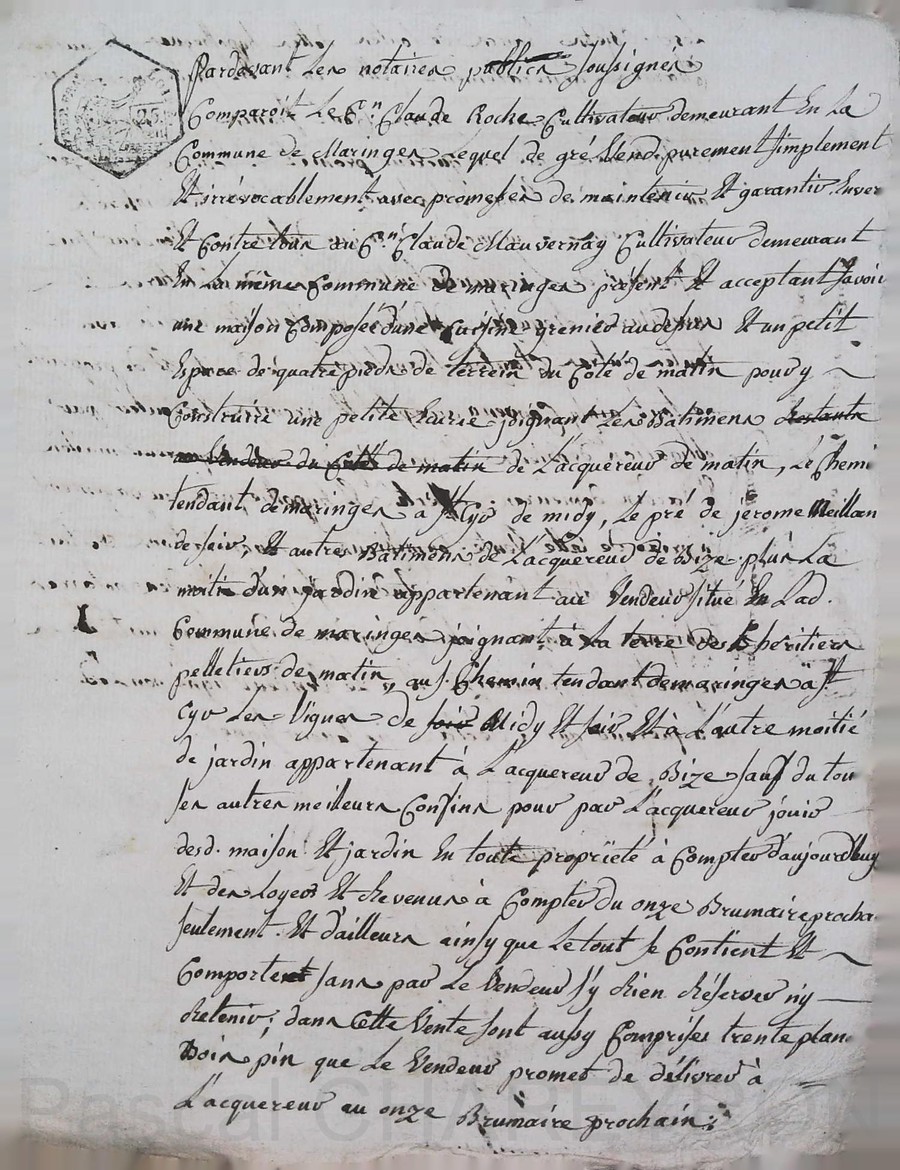 Pardevant Les notaires publics soussignés
Comparoit Le C.en Claude Roche Cultivateur demeurant En La
Commune de Maringes Lequel de gré Vend purement simplement
Et irrévocablement avec promesses de maintenir Et garantir Enver
Et Contre tous au C.en Claude Mauvernay Cultivateur demeurant
En La même Commune de maringes présent Et acceptant savoir
une maison Composée d'une Cuisine grenier au dessus Et un petit
Espace de quatre pieds de terrein du Coté de matin pour y
Construire une petite Ecurie joignant Les Batimens Restants
au Vendeur du Coté de matin de L'acquereur de matin, Le Chemi
tendant de maringes a St Cyr de midy, Le pré de jérome Meillan
de soir, Et autres Batimens de L'acquereur de Bize plus La
moitié d'un jardin appartenant au Vendeur situé En Lad.
Commune de maringes joignant à La terre des héritiers
pelletiers de matin, aus. Chemin tendant de maringes a St
Cyr Les Vignes de soir Midy Et soir Et à L'autre moitié
de jardin appartenant à L'acquereur de Bize sauf du tou
ses autres meilleurs Confins pour par L'acquereur jouir
desd. maison Et jardin En toute propriété à Compter d'aujourd'huy
Et des Loyers Et Revenus à Compter du onze Brumaire procha
seulement. Et d'ailleurs ainsy que Le tout se Contient Et
Comportent sans par Le Vendeur s'y Rien Réserver n'y
Retenir; dans Cette Vente sont aussy Comprises trente plan
Bois pin que Le Vendeur promet de délivrer à
L'acquereur au onze Brumaire prochain;